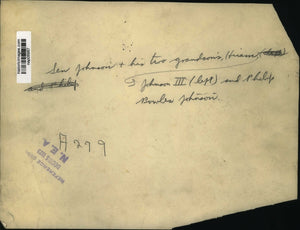 Sen Johnson + his two grandsons, Hiram
and Philip
J Johnson III (left) and Philip
Bowles Johnson.
A299
REFERENCE
N.E.A.